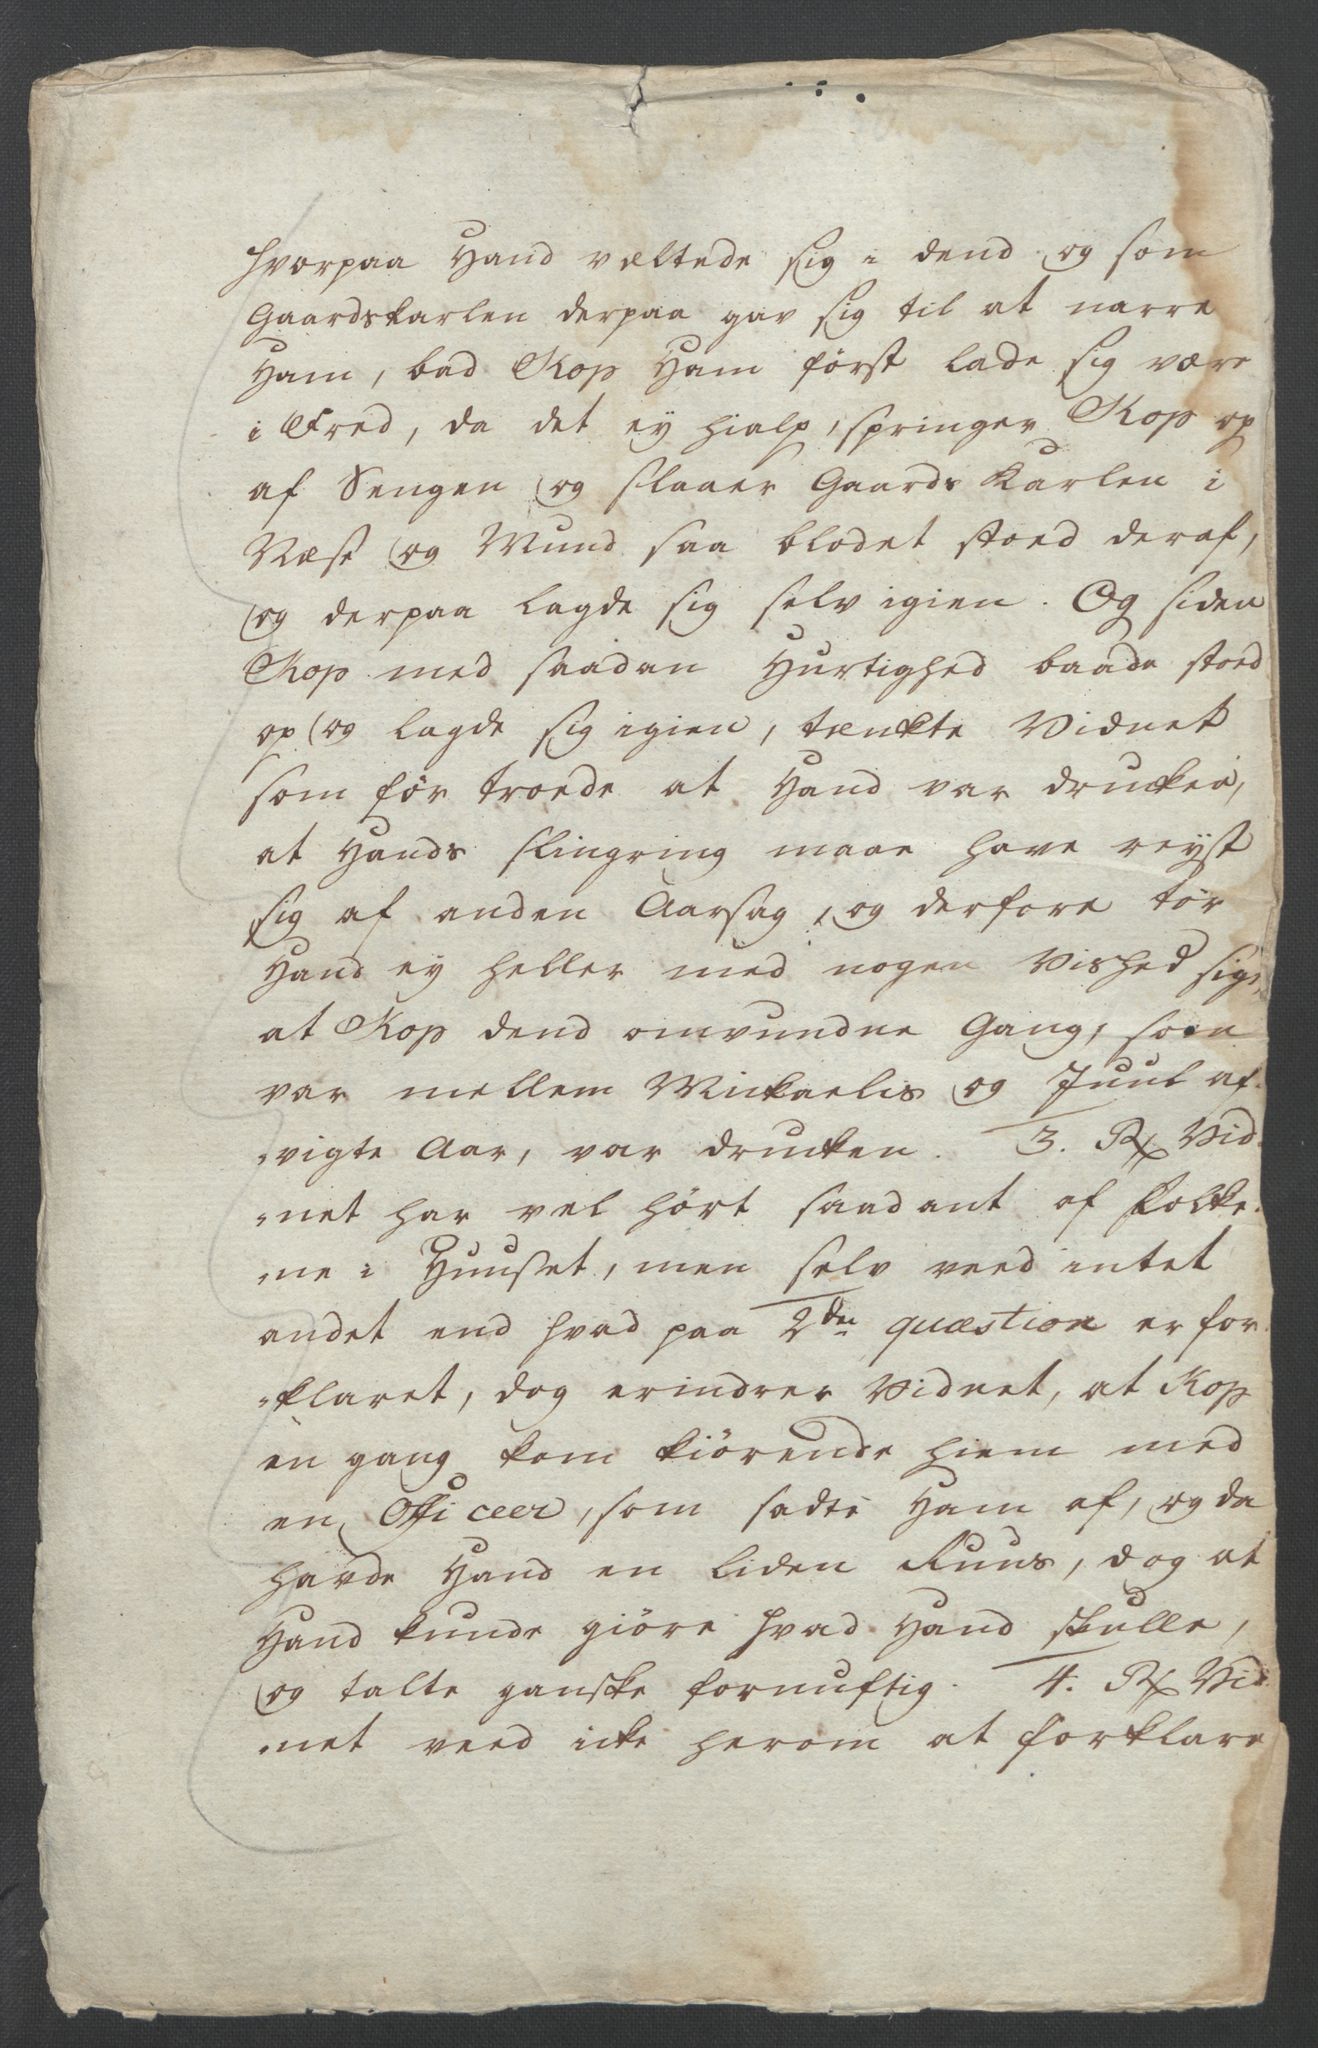 hvorpaa Hand væltede sig i dend og som
Gaardskarlen derpaa gav sig til at narre
Ham, bad Kop Ham först lade sig være
i Fred, da det ey hialp, springer Kop op
af Sengen og slaaer Gaards Karlen i
Næse og Mund saa blodet stoed deraf,
og derpaa lagde sig selv igien. Og siden
Kop med saadan Hurtighed baade stoed
op og lagde sig igien, tænkte Vidnet
som för troede at Hand var drucken,
at Hands slingring maae have reyst
sig af anden Aarsag, og derfore tör
Hand ey heller med nogen Vished sige,
at Kop dend omvundne Gang, som
var mellem Mickaelis og Juul af-
vigte Aar, var drucken. 3. Rx Vid-
net har vel hört saadant af Folke-
ne i Huuset, men selv veed intet
andet end hvad paa 2den quæstion er for-
klaret, dog erindrer Vidnet, at Kop
en gang kom kiörende hiem med
en Officeer, som sadte Ham af, og da
havde Hand en liden Ruus, dog at
Hand kunde giöre hvad Hand skulle,
og talte ganske fornuftig. 4. Rx Vid-
net veed icke herom at forklare